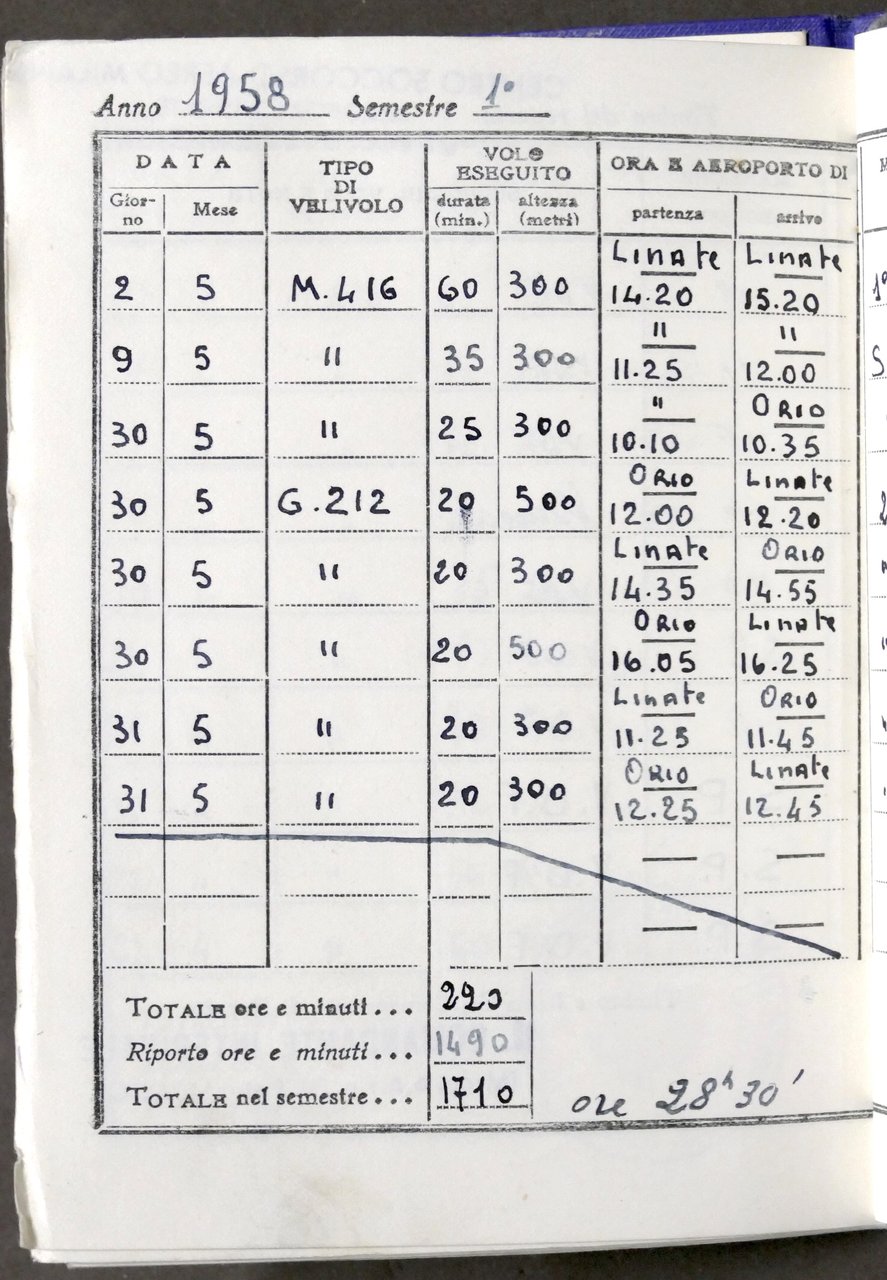 Anno 1958 Semestre 1°
DATA TIPO DI VELIVOLO VOLO ESEGUITO ORA E AEROPORTO DI
Gior-no Mese durata (min.) altezza (metri) partenza arrivo
Linate Linate
2 5 M.416 60 300 14.20 15.20
" "
9 5 " 35 300 11.25 12.00
" Orio
30 5 " 25 300 10.10 10.35
Orio Linate
30 5 G.212 20 500 12.00 12.20
Linate Orio
30 5 " 20 300 14.35 14.55
Orio Linate
30 5 " 20 500 16.05 16.25
Linate Orio
31 5 " 20 300 11.25 11.45
Orio Linate
31 5 " 20 300 12.25 12.45
TOTALE ore e minuti... 220
Riporto ore e minuti... 1490
TOTALE nel semestre... 1710 ore 28h 30'